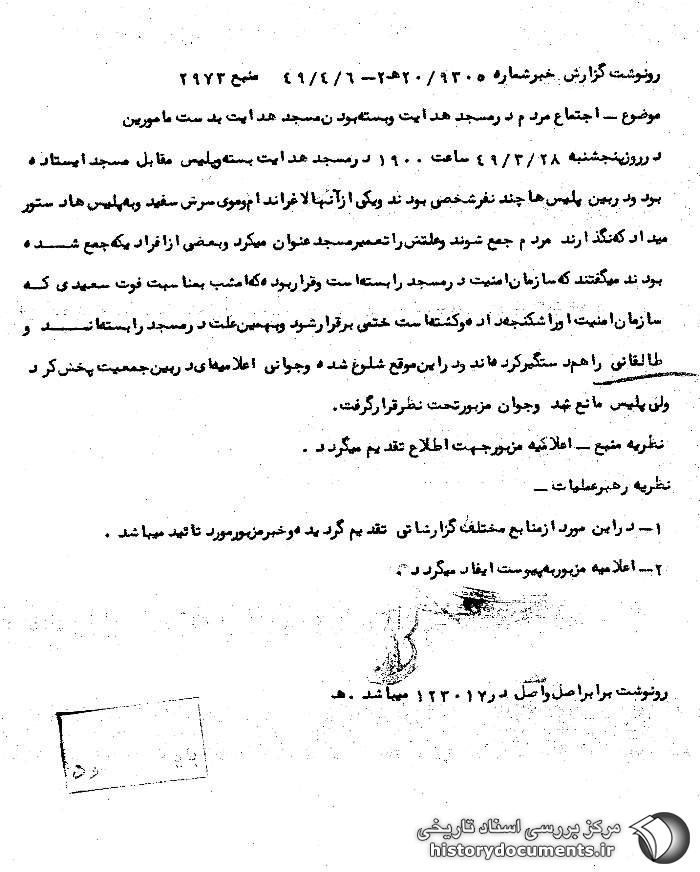 رونوشت گزارش خبر شماره ۲۰/۹۳۰۵هـ۲ – ۴۹/۴/۶ منبع ۲۹۷۳
موضوع – اجتماع مردم در مسجد هدایت و بسته بودن مسجد هدایت بدست مامورین
در روز پنجشنبه ۴۹/۳/۲۸ ساعت ۱۹۰۰ در مسجد هدایت بسته و پلیس مقابل مسجد ایستاده
بود و در بین پلیس ها چند نفر شخصی بودند و یکی از آنها لاغر اندام و موی سرش سفید و به پلیس ها دستور
میداد که نگذارند مردم جمع شوند و علتش را تعمیر مسجد عنوان میکرد و بعضی از افرادیکه جمع شده
بودند میگفتند که سازمان امنیت در مسجد را بسته است و قرار بوده که امشب بمناسبت فوت سعیدی که
سازمان امنیت او را شکنجه داده و کشته است ختمی برقرار شود و بهمین علت در مسجد را بسته اند و
طالقانی را هم دستگیر کرده اند و در این موقع شلوغ شده و جوانی اعلامیه ای در بین جمعیت پخش کرد
ولی پلیس مانع شد و جوان مزبور تحت نظر قرار گرفت.
نظریه منبع – اعلامیه مزبور جهت اطلاع تقدیم میگردد.
نظریه رهبر عملیات –
۱– در این مورد از منابع مختلف گزارشاتی تقدیم گردیده و خبر مزبور مورد تائید میباشد.
۲– اعلامیه مزبور به پیوست ایفاد میگردد.
رونوشت برابر اصل و اصل در ۱۲۳۰۱۷ میباشد. هـ
مرکز بررسی اسناد تاریخی
historydocuments.ir